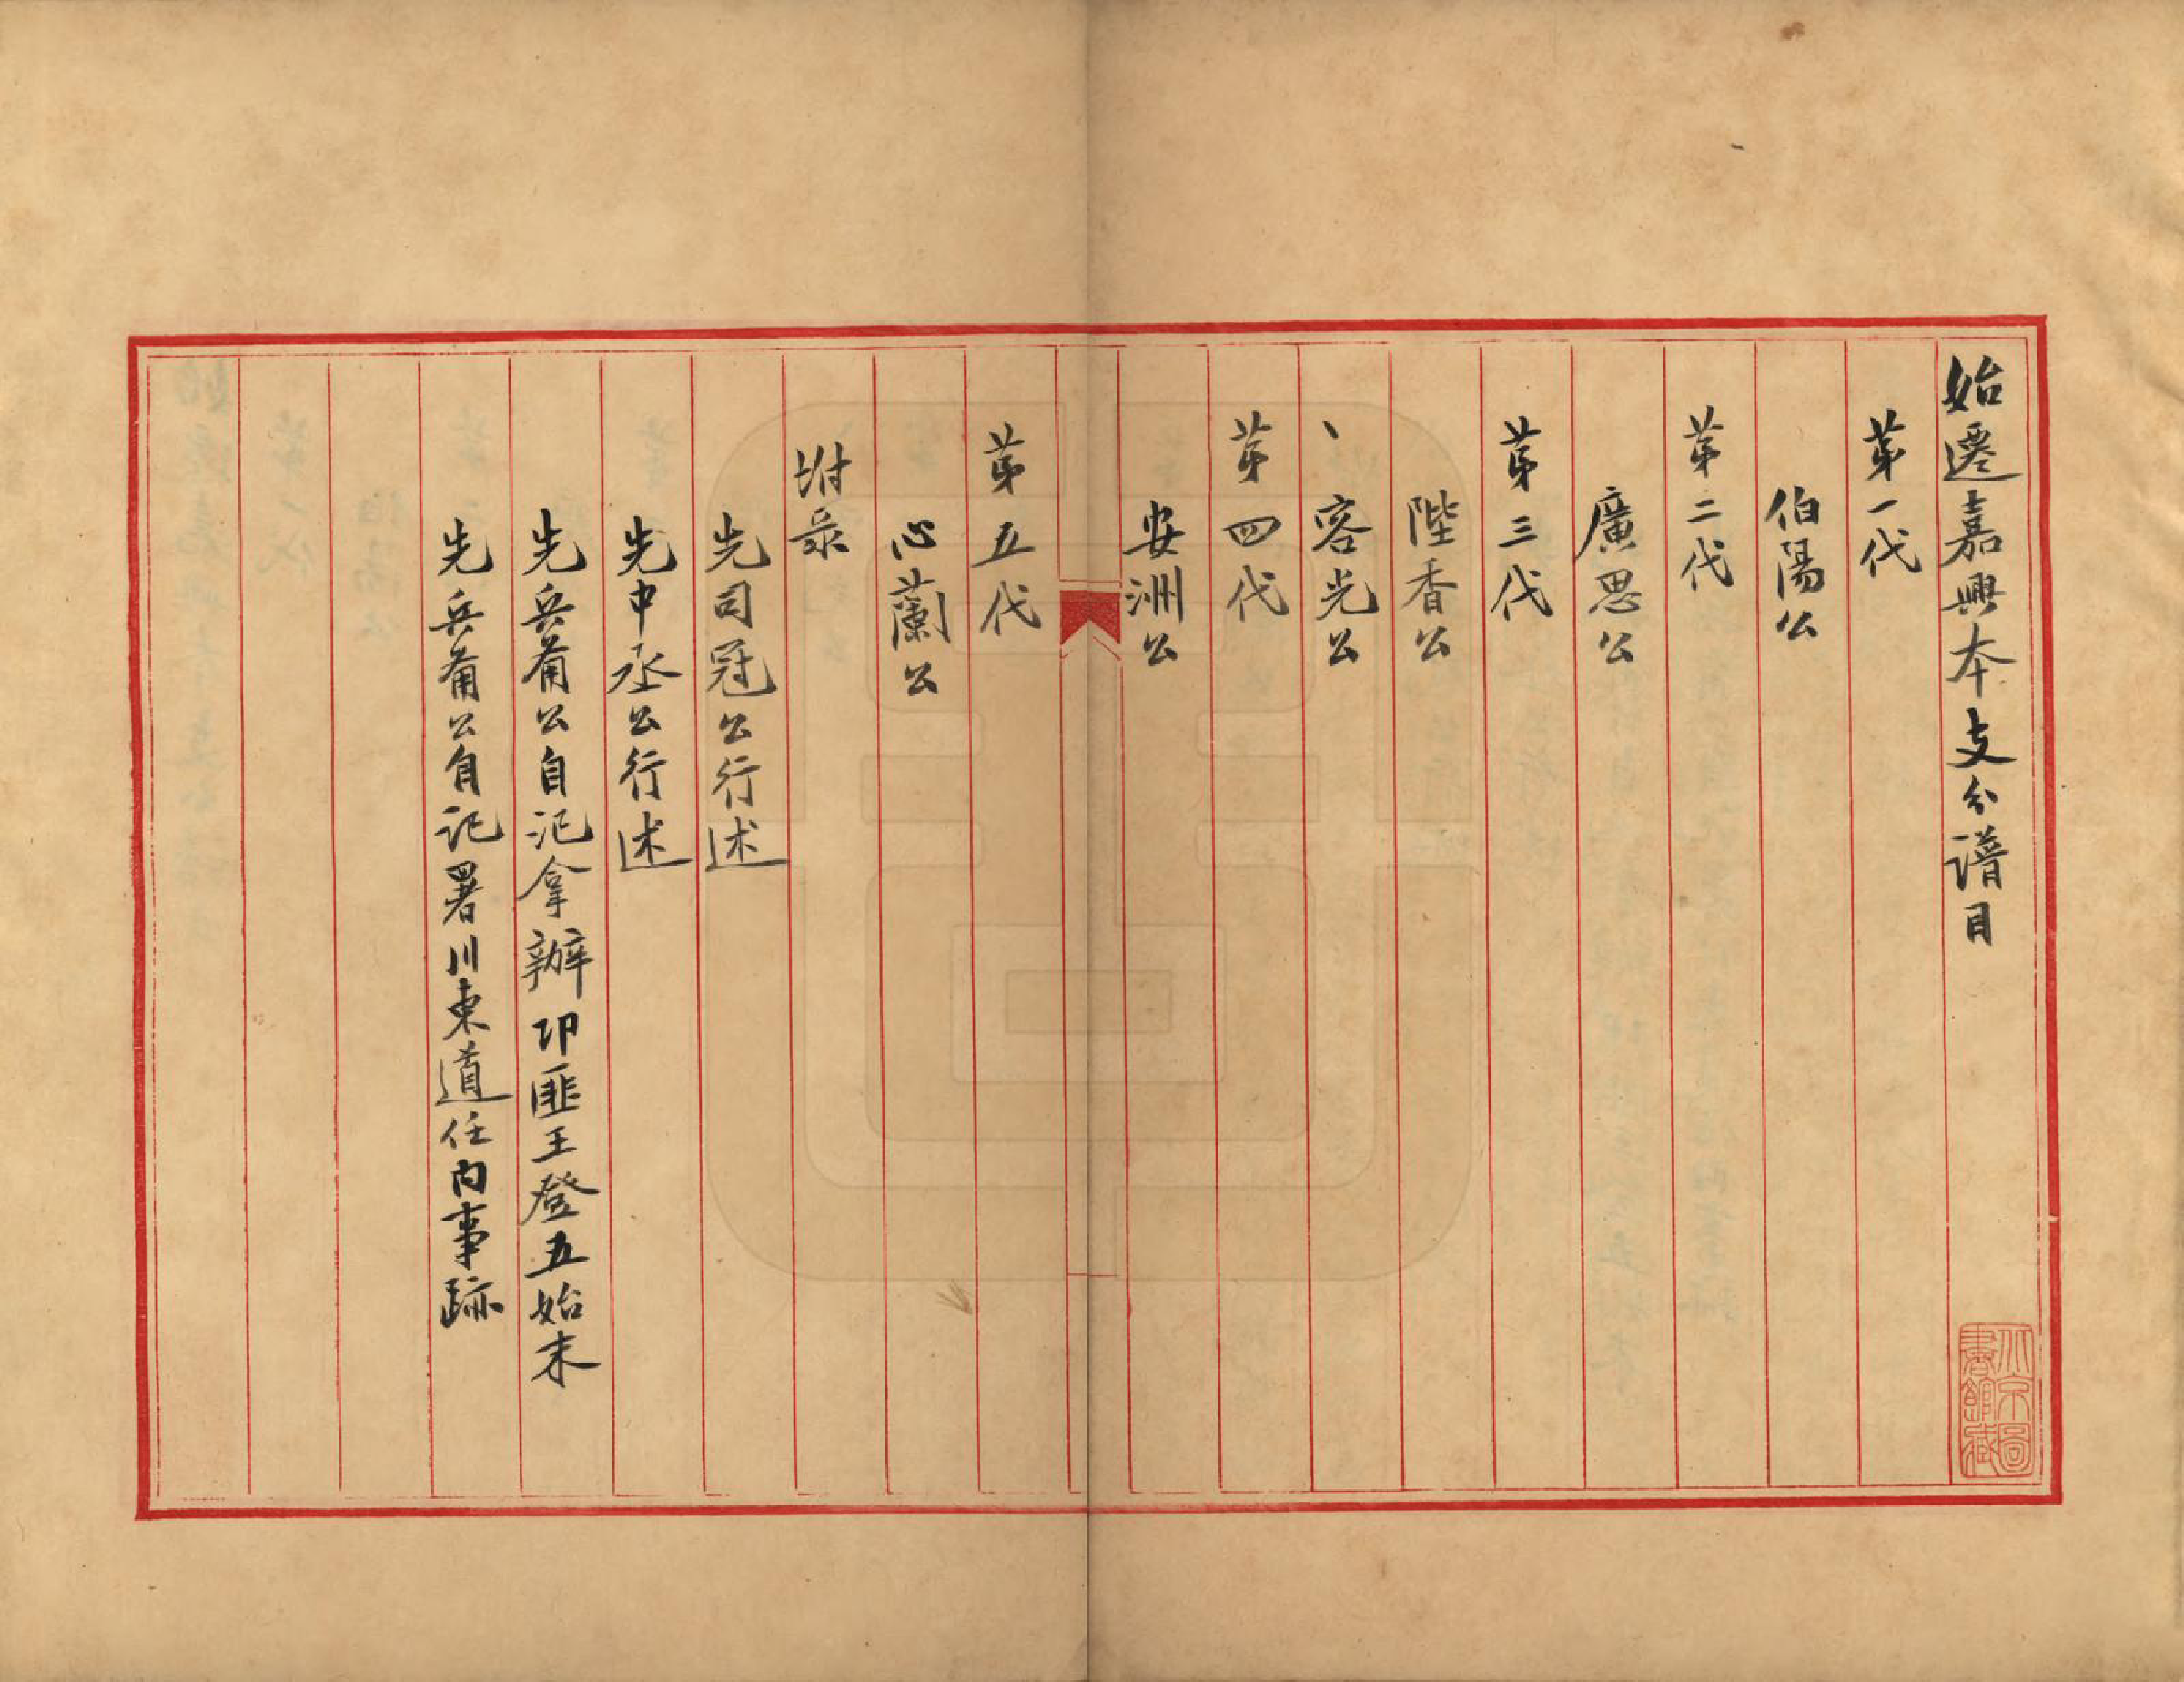 始遷嘉興本支分譜目
第一代
伯陽公
第二代
廣思公
第三代
陛香公
、容光公
第四代
安洲公
第五代
心蘭公
坿录
先司冠公行述
先中丞公行述
先兵备公自记拿辦邛匪王登五始末
先兵备公自记署川東道任内事跡
北京圖
書館藏